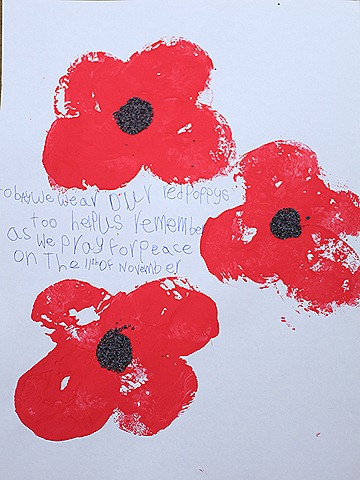 we wear our red poppys
too help us remember
as we pray for peace
on The 11th of November